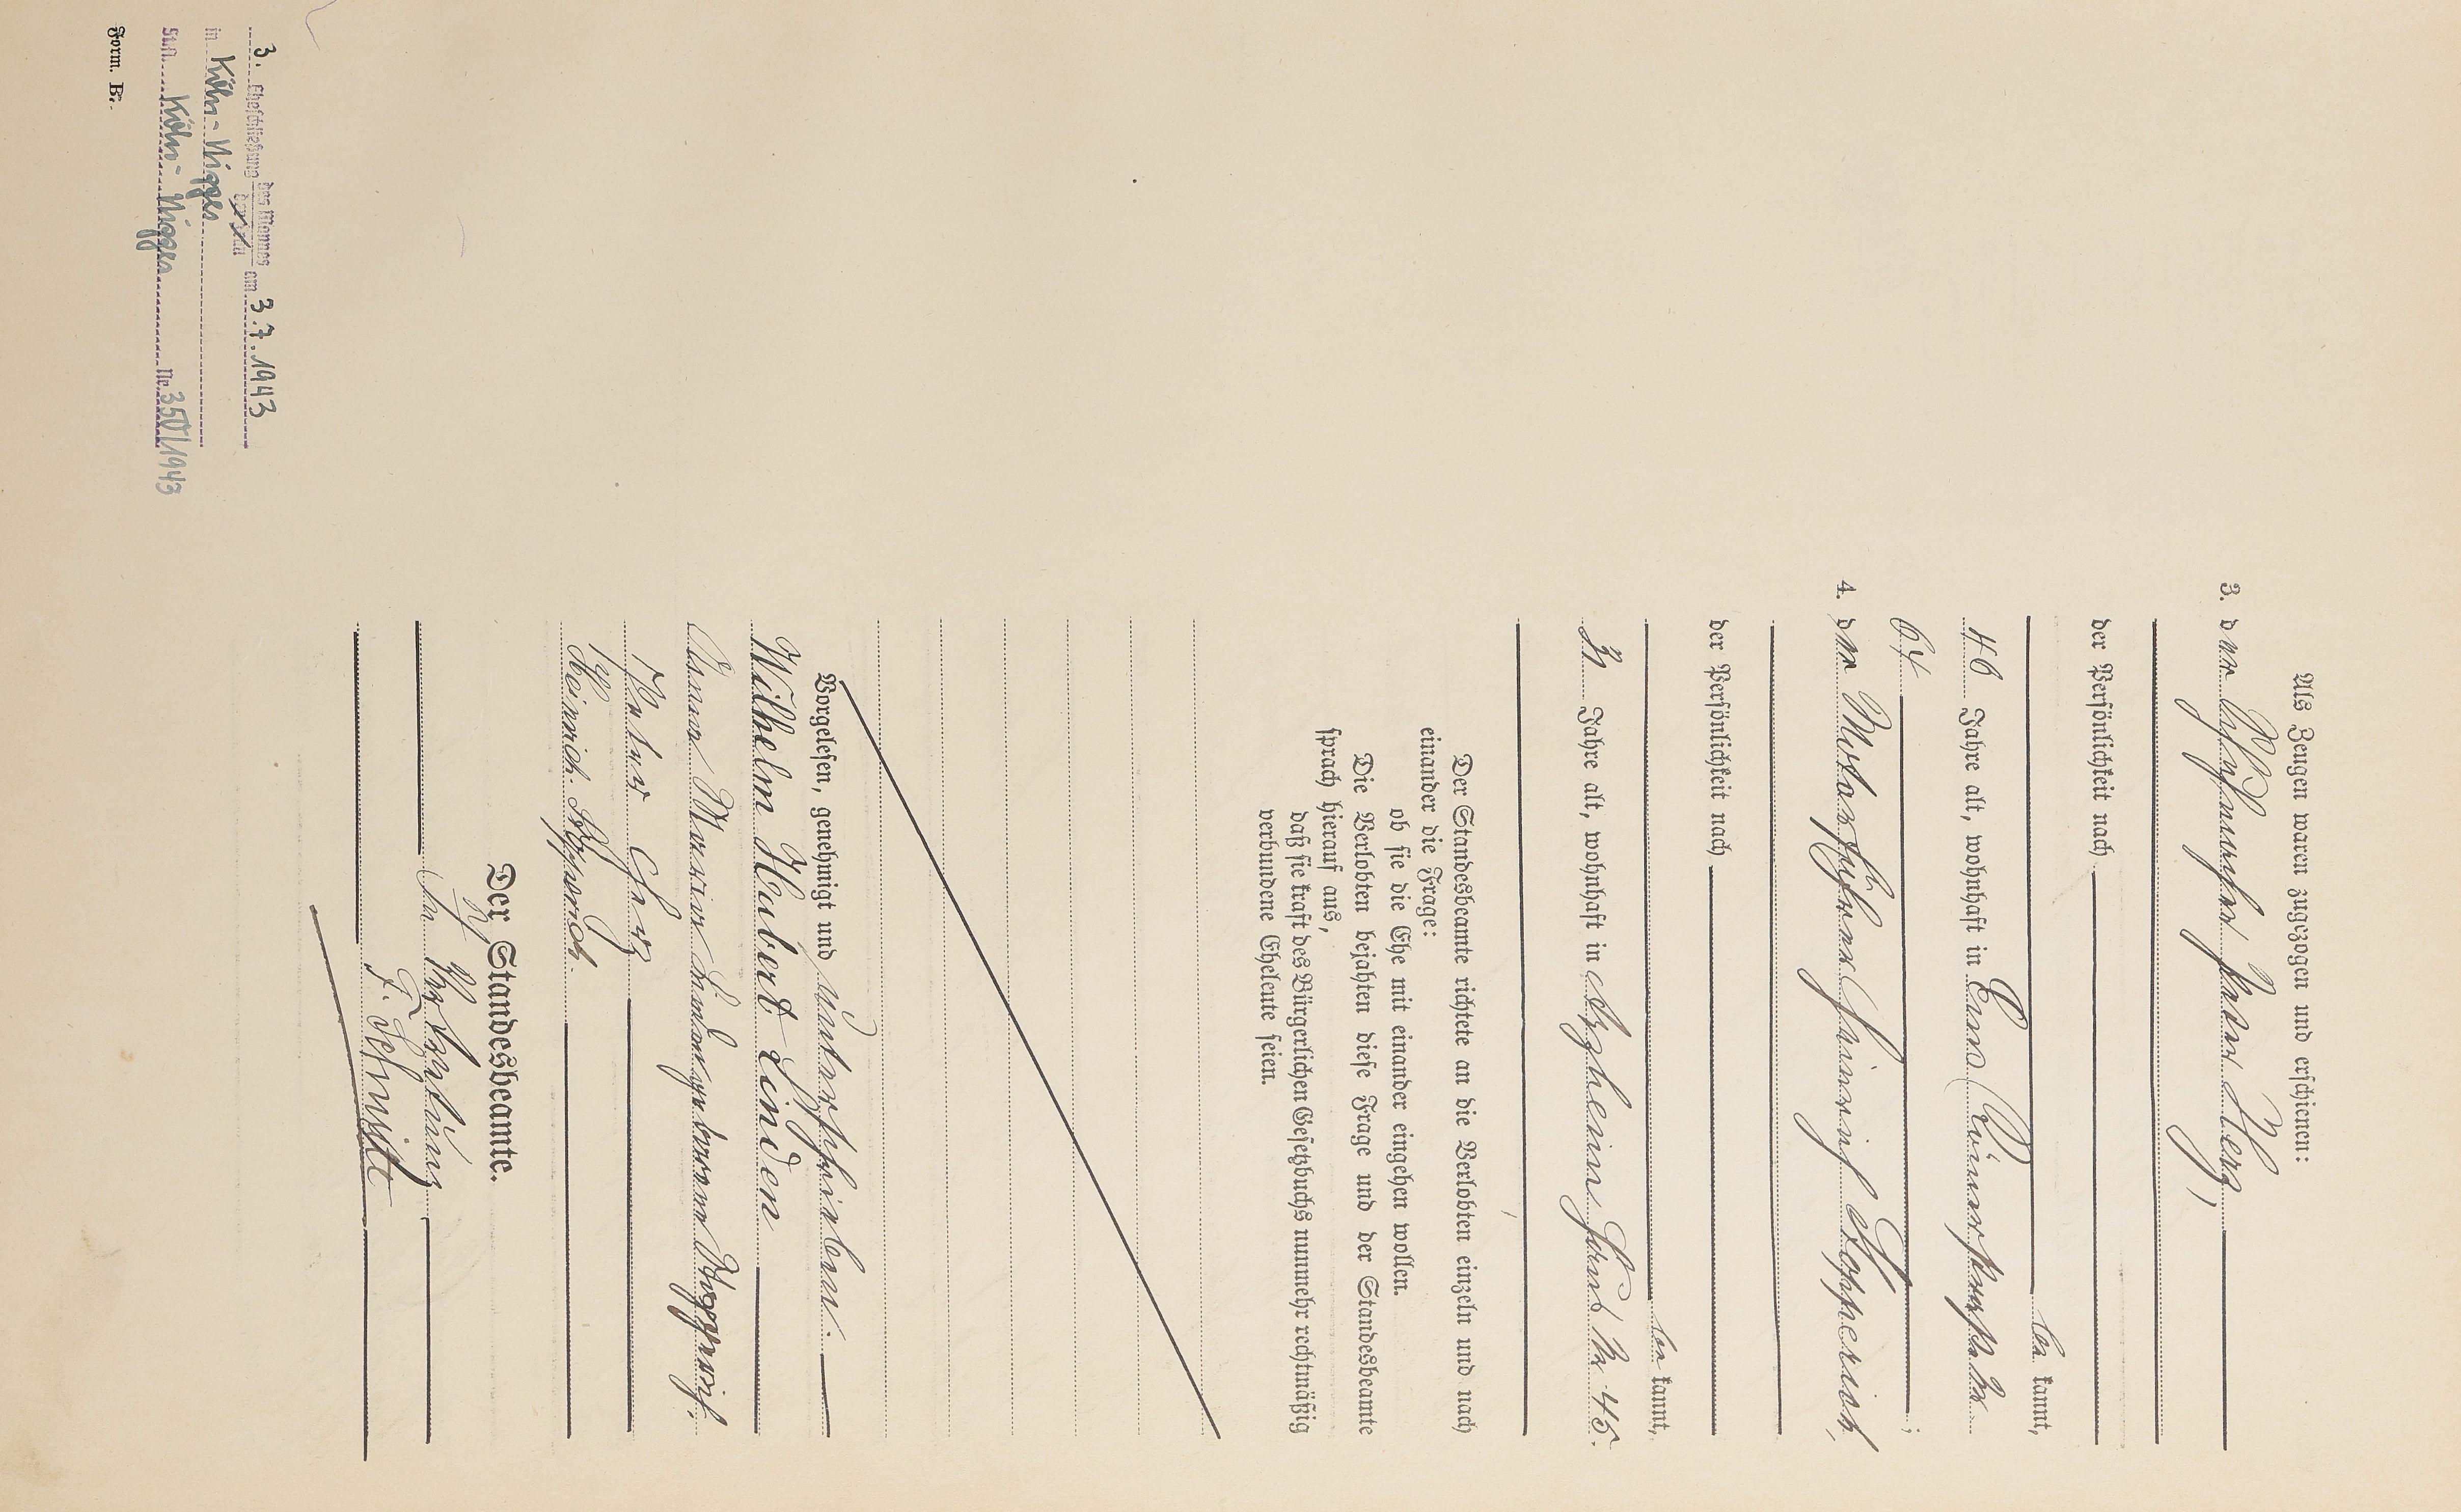 Als Zeugen waren zugezogen und erschienen:
3. der Peter Herz,
der Persönlichkeit nach
be kannt,
46 Jahre alt, wohnhaft in Ems Römerstraße
64 ;
4. der Motorführer Heinrich Stopperich,
der Persönlichkeit nach
be kannt,
31 Jahre alt, wohnhaft in Arzheim Nr 45.
Der Standesbeamte richtete an die Verlobten einzeln und nach
einander die Frage:
ob sie die Ehe mit einander eingehen wollen.
Die Verlobten bejahten diese Frage und der Standesbeamte
sprach hierauf aus,
daß sie kraft des Bürgerlichen Gesetzbuchs nunmehr rechtmäßig
verbundene Eheleute seien.
Vorgelesen, genehmigt und unterschrieben.
Wilhelm Hubert Linden
Anna Maria Linden geborene
Peter Herz
Heinrich Stopperich.
Der Standesbeamte.
In Vertretung
J. Schmidt
3. Eheschließung des Mannes der Frau am 3.7.1943
in Köln-Nippes
StA Köln-Nippes Nr. 350/1943
Form. B.